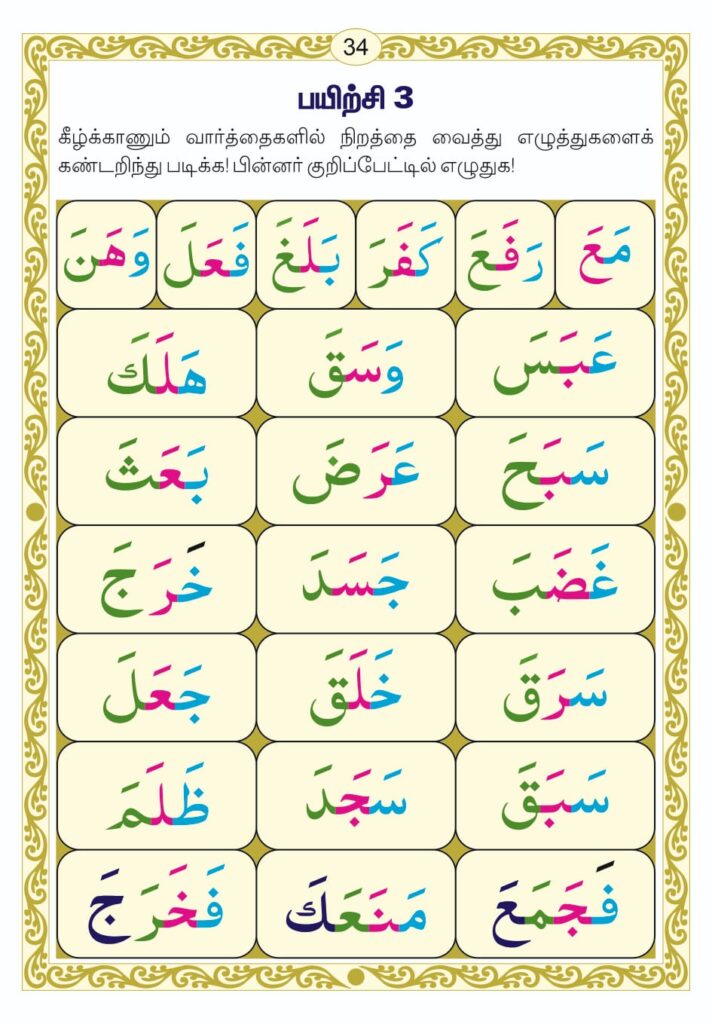 34
பயிற்சி 3
கீழ்க்காணும் வார்த்தைகளில் நிறத்தை வைத்து எழுத்துகளைக்
கண்டறிந்து படிக்க! பின்னர் குறிப்பேட்டில் எழுதுக!
مَعَ رَفَعَ كَفَرَ بَلَغَ فَعَلَ وَهَنَ
عَبَسَ وَسَقَ هَلَكَ
سَبَحَ عَرَضَ بَعَثَ
غَضَبَ جَسَدَ خَرَجَ
سَرَقَ خَلَقَ جَعَلَ
سَبَقَ سَجَدَ ظَلَمَ
فَجَمَعَ مَنَعَكَ فَخَرَجَ